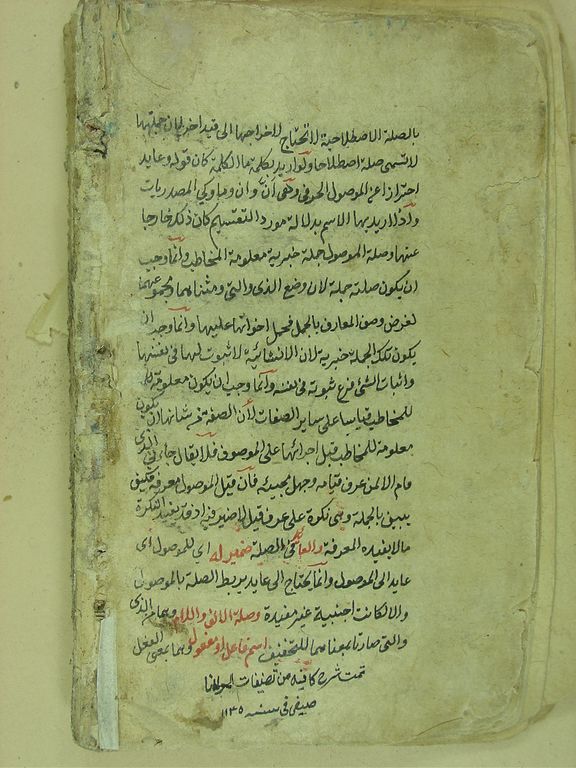 بالصلة الاصطلاحية لا نحتاج لاخراجها الى قيد اخر لان جملتها
لا تسمى صلة اصطلاحا ولو اريد بكلمة ما الكلمة كان قوله وعايد
احترازا عن الموصول الحرفي وهي أنّ وان وما وكي المصدريات
واذا اريد بها الاسم بدلالة مورد التقسيم كان ذلك خارجا
عنها وصلة الموصول جملة خبرية معلومة المخاطب وانما وجب
ان يكون صلته جملة لان وضع الذى والتى ومثناهما ومجموعهما
لغرض وصف المعارف بالجمل فحمل اخواتها عليها وانما وجب ان
يكون تلك الجملة خبرية لان الانشائية لا ثبوت لها فى نفسها
واثبات الشئ فرع ثبوته فى نفسه وانما وجب ان يكون معلومة
للمخاطب قياسا على ساير الصفات لأن الصفة من شانها ان يكون
معلومة للمخاطب قبل اجرائها على الموصوف فلا يقال جاءنى الذى
قام الا لمن عرف قيامه وجهل مجيئه فان قيل الموصول معرفة فكيف
يبين بالجملة وهى نكرة على عرف قبل لا ضير فيه اذ قد يفيد النكرة
ما لا يفيده المعرفة والعائد فى الصلة ضمير له اي للموصول اى
عايد الى الموصول وانما يحتاج الى عايد يربط الصلة بالموصول
والا لكانت اجنبية غير مفيدة وصلة الالف واللام وهما من الذى
والتى صارتا بمعناهما للتخفيف اسم فاعل او مفعول وهما بمعنى الفعل
تمت شرح كافيه من تصنيفات
صيفى فى سنه ١١٣٥